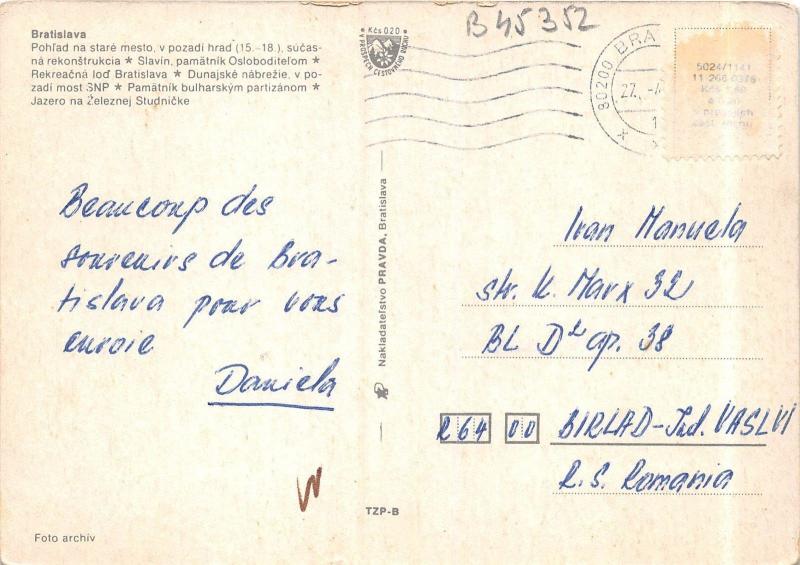 Bratislava
Pohľad na staré mesto, v pozadí hrad (15.-18.), súčas-
ná rekonštrukcia ★ Slavín, pamätník Osloboditeľom ★
Rekreačná loď Bratislava ★ Dunajské nábrežie, v po-
zadí most SNP ★ Pamätník bulharským partizánom ★
Jazero na Železnej Studničke
Kčs 0.20
V PROSPECH CESTOVNÉHO RUCHU
B 45352
80200 BRA
27. -4.
5024/1141
11 266 0376
Beaucoup des
souvenirs de Bra-
tislava pour vous
envoie
Daniela
Nakladateľstvo PRAVDA, Bratislava
Ivan Manuela
str. K. Marx 32
BL D² ap. 38
R 64 00 BIRLAD-Jud. VASLUI
R.S. Romania
TZP-B
Foto archív